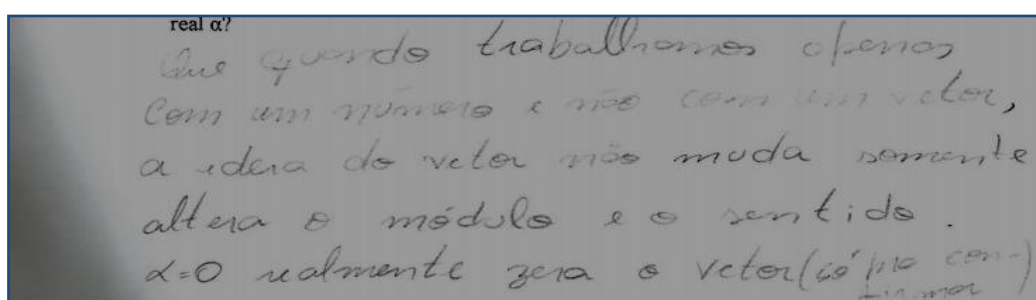 real α?
Que quando trabalhamos apenas
com um número e não com um vetor,
a ideia do vetor não muda somente
altera o módulo e o sentido.
α=0 realmente zera o vetor (só pra con-
firmar)